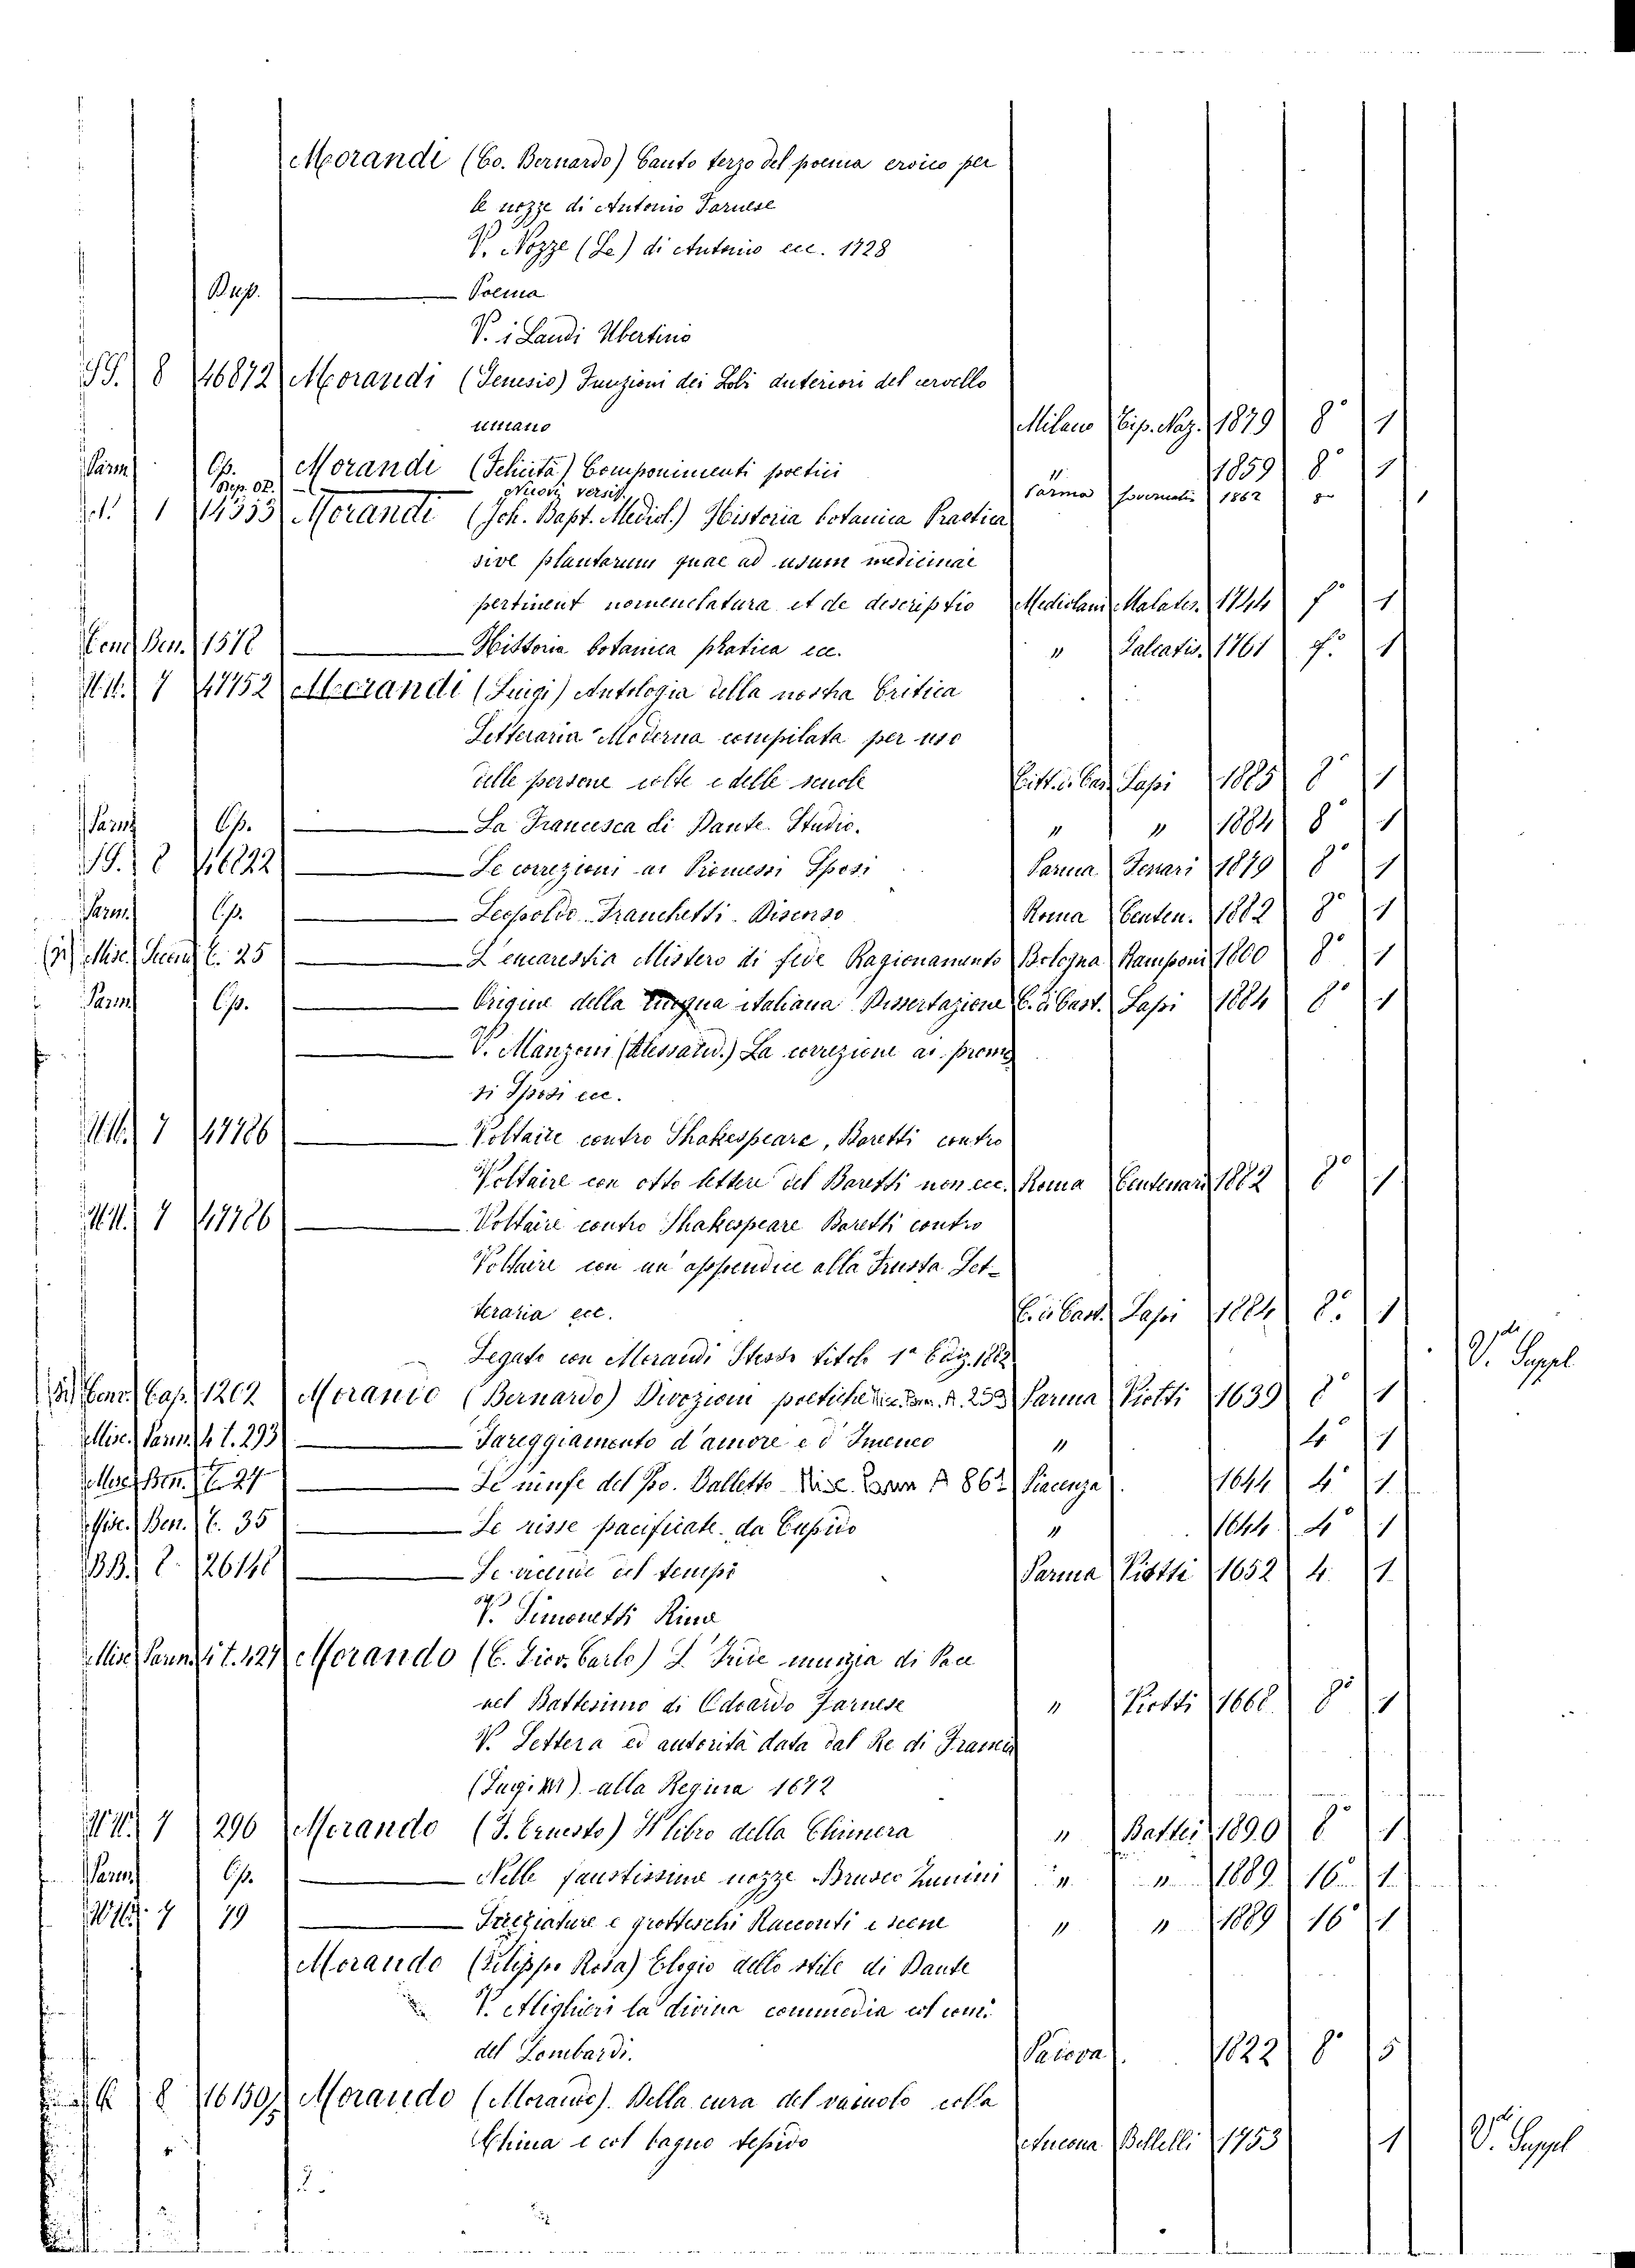 Morandi (Co. Bernardo) Canto terzo del poema eroico per
le nozze di Antonio Farnese
V. Nozze (Le) di Antonio ecc. 1728
Dup. Poema
V. i Landi Ubertino
SS. 8 46872 Morandi (Genesio) Funzioni dei Lobi anteriori del cervello
umano Milano Tip. Naz. 1879 8° 1
Parm. Op. Morandi (Felicita) Componimenti poetici " 1859 8° 1
Nuovi versi. Parma Governativ 1862 8° 1
1 14555 Morandi (Joh. Bapt. Mediol.) Historia botanica Practica
sive plantarum quae ad usum medicinae
pertinent nomenclatura et de descriptio Mediolani Malates. 1744 f° 1
Ben. 1578 Histtoria botanica pratica ecc. " Galeatis. 1761 f° 1
7 47752 Morandi (Luigi) Antologia della nostra Critica
Letteraria Moderna compilata per uso
delle persone colte e delle scuole Citt. di Cas. Lapi 1885 8° 1
Parm. Op. La Francesca di Dante. Studio. " " 1884 8° 1
8 46822 Le correzioni ai Promessi Sposi Parma Ferrari 1879 8° 1
Parm. Op. Leopoldo Franchetti. Discorso Roma Centen. 1882 8° 1
Misc. t. 25 L'eucarestia Mistero di fede Ragionamento Bologna Ramponi 1800 8° 1
Parm. Op. Origine della lingua italiana Dissertazione C. di Cast. Lapi 1884 8° 1
V. Manzoni (Alessand.) La correzione ai promes
si Sposi ecc.
7 47786 Voltaire contro Shakespeare, Baretti contro
Voltaire con otto lettere del Baretti non ecc. Roma Centenari 1882 8° 1
7 47786 Voltaire contro Shakespeare Baretti contro
Voltaire con un'appendice alla Frusta Let-
teraria ecc. C. di Cast. Lapi 1884 8° 1
Legato con Morandi Stesso titolo 1a Ediz. 1882
V. Suppl
Cap. 1202 Morando (Bernardo) Divozioni poetiche Parma Viotti 1639 8° 1
Misc. Parm. 4 t. 293 Gareggiamento d'amore e d'Imeneo " 4° 1
Misc. Ben. t. 27 Le ninfe del Po. Balletto Misc. Parm A 862 Piacenza 1644 4° 1
Misc. Ben. t. 35 Le risse pacificate da Cupido " 1644 4° 1
BB. 8. 26148 Le vicende del tempo Parma Viotti 1652 4. 1
V. Simonetti Rime
Misc. Parm. 4 t. 427 Morando (C. Giov. Carlo) L'Iride nunzia di Pace
nel Battesimo di Edoardo Farnese " Viotti 1668 8° 1
V. Lettera ed autorità data dal Re di Francia
(Luigi XIII) alla Regina 1672
7 296 Morando (F. Ernesto) Il libro della Chimera " Battei 1890 8° 1
Parm. Op. Nelle faustissime nozze Brusco " " 1889 16° 1
7 79 e grotteschi Racconti e scene " " 1889 16° 1
Morando (Filippo Rosa) Elogio dello stile di Dante
V. Alighieri la divina commedia col com.
del Lombardi. Padova 1822 8° 5
8 16150 Morando (Morando). Della cura del vaiuolo colla
China e col bagno tepido Ancona Bellelli 1753 1 V. Suppl